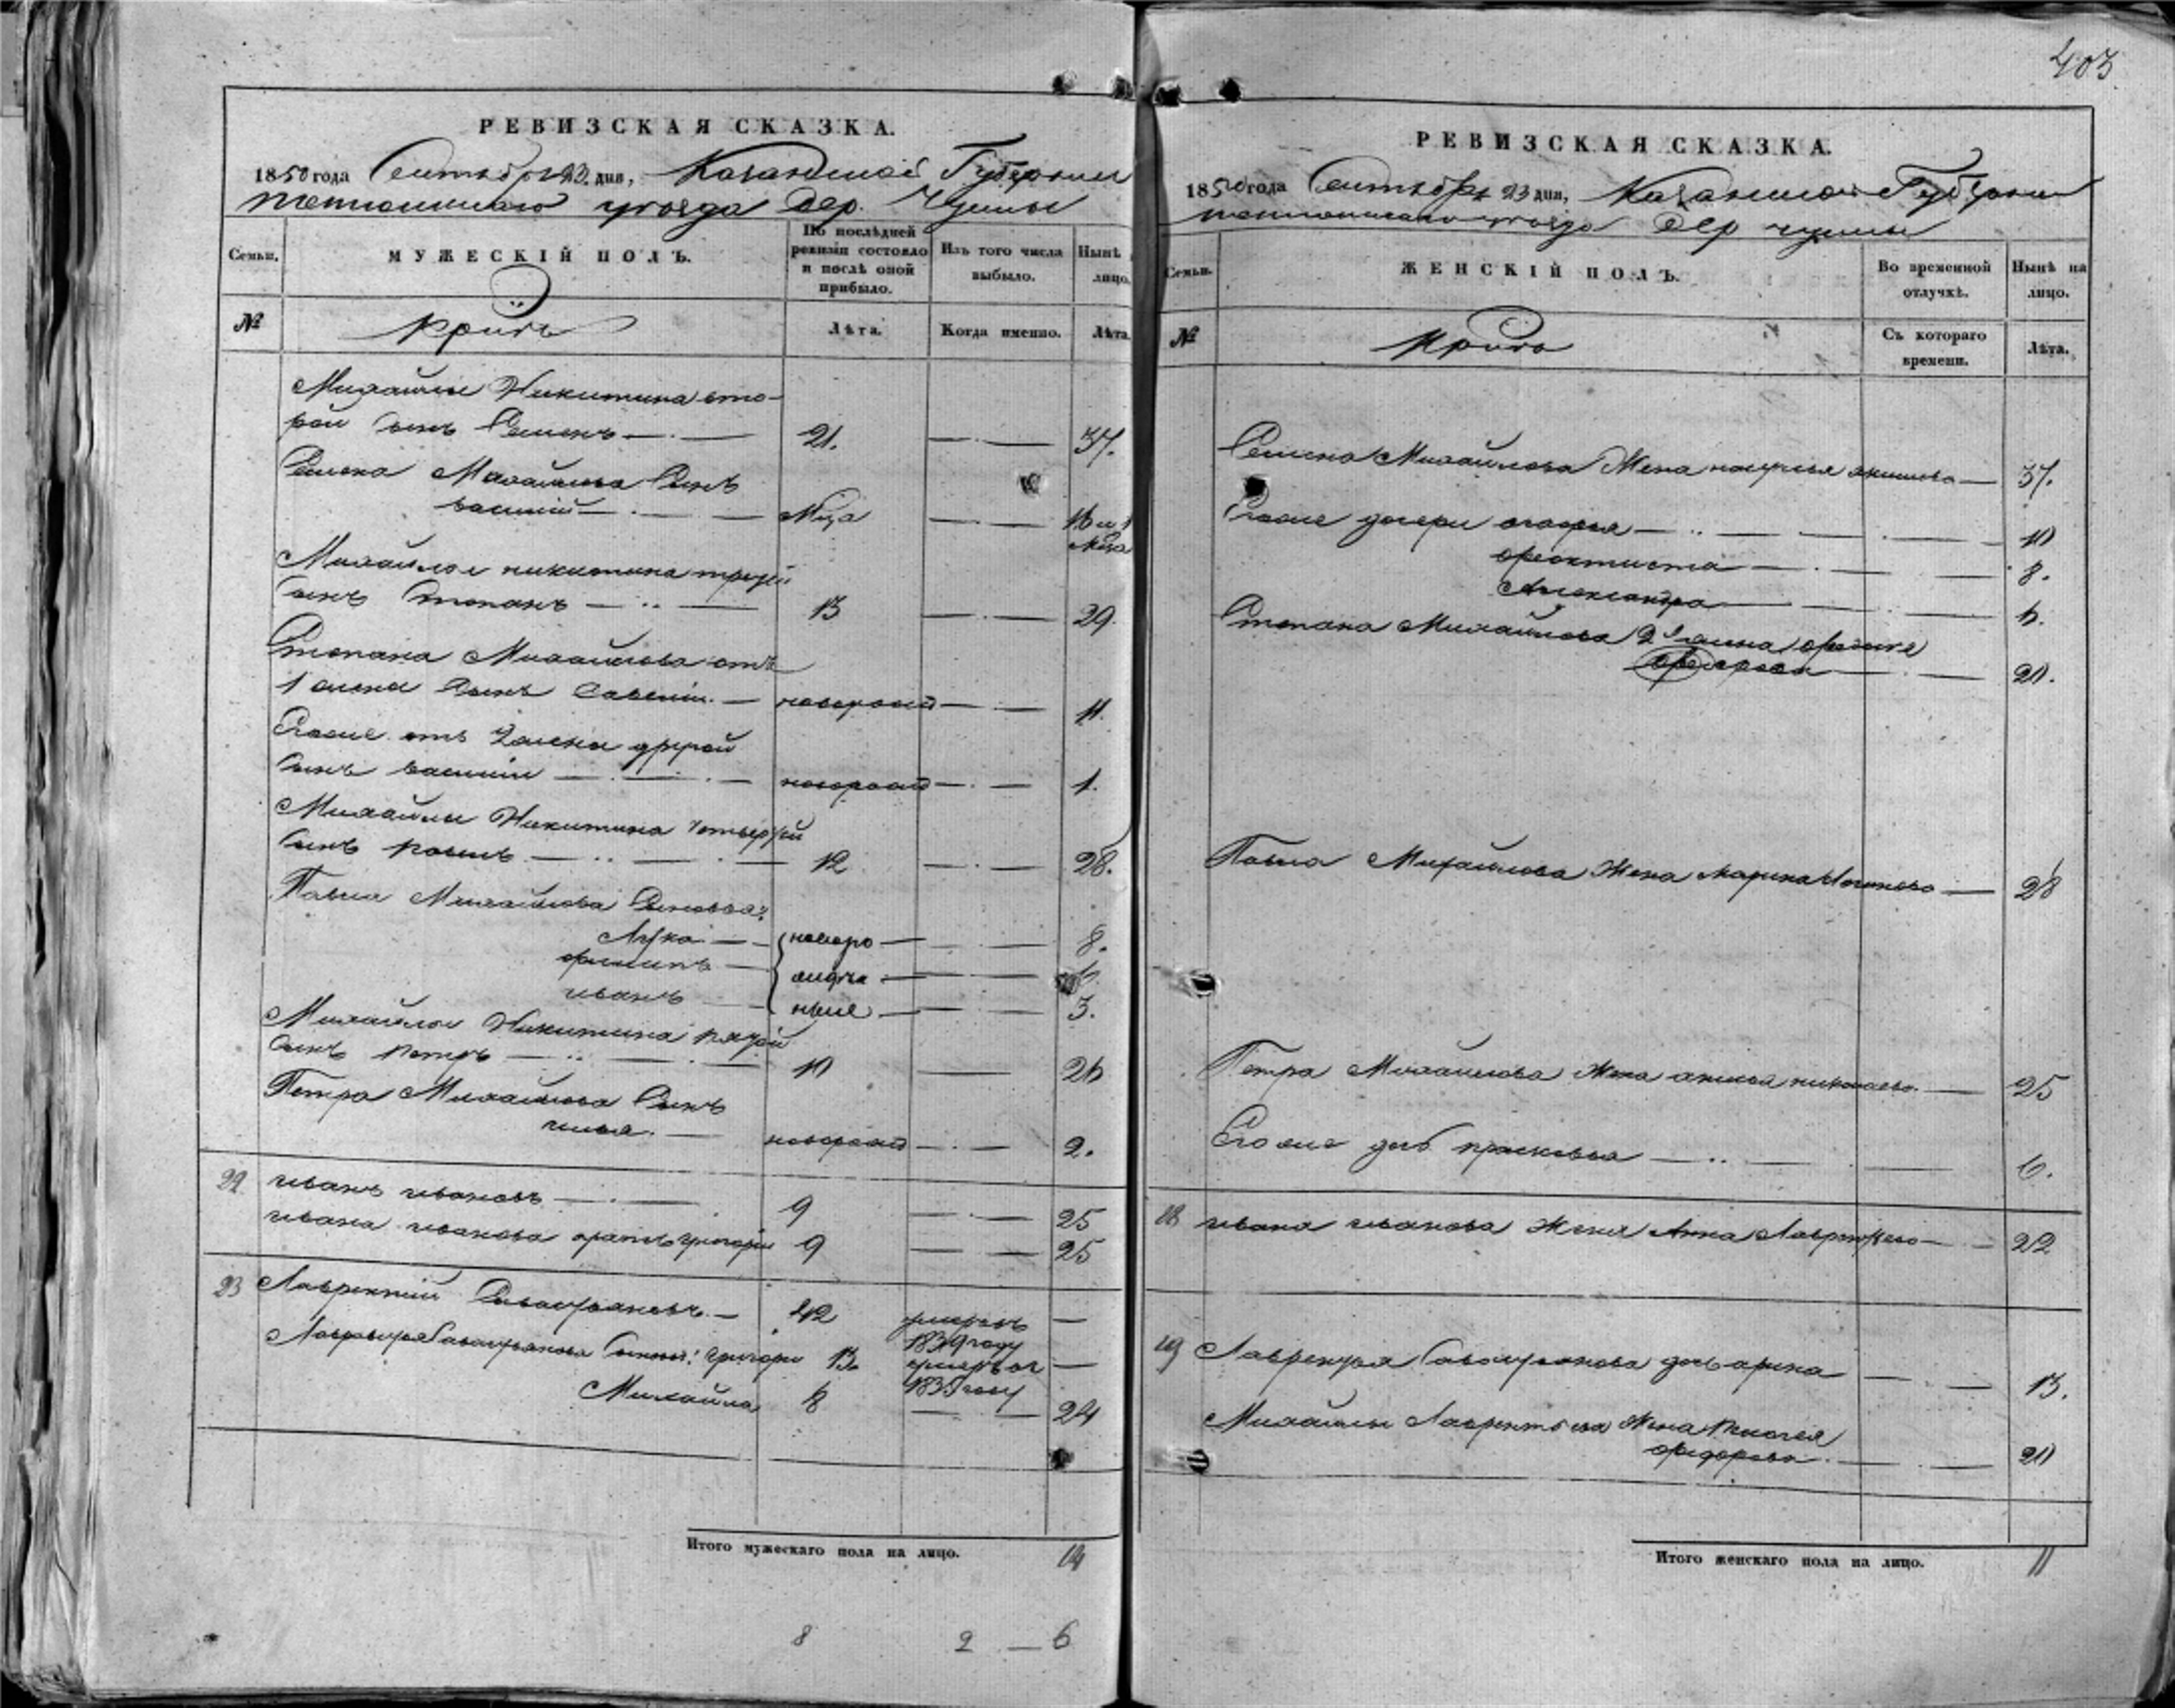 403
РЕВИЗСКАЯ СКАЗКА.
1850 года Сентября 23 дня, Казанской Губернии
уезда дер. Чулпы
Семьи.
МУЖЕСКІЙ ПОЛЪ.
По послѣдней ревизіи состояло и послѣ оной прибыло.
Изъ того числа выбыло.
Нынѣ лицо.
№
Лѣта.
Когда именно.
Лѣта.
Михайлы Никитина вто-
рой сынъ Семенъ 21. 37.
Семена Михайлова Сынъ
Василій
Михайлы Никитина третій
сынъ Степанъ 13 29.
Степана Михайлова отъ
1 жены Сынъ Савелій новорожд 11.
Его же отъ 2 жены другой
Сынъ Василій новорожд 1.
Михайлы Никитина четвертой
Сынъ Павелъ 12 28.
Павла Михайлова Сыновья:
Лука новоро 8.
Филипъ жидчь 6.
Иванъ ные 3.
Михайлы Никитина пятой
Сынъ Петръ 10 26
Петра Михайлова Сынъ
Илья. новорожд 2.
22 Иванъ Ивановъ 9 25
Ивана Иванова братъ Григорій 9 25
23 Лаврентій Савастьяновъ 42 умеръ въ
1839 году
Лаврентья Савастьянова Сыны: Григорій 13 умеръ въ
1835 году
Михайла 8 24
Итого мужескаго пола на лицо. 14
8 2 — 6
РЕВИЗСКАЯ СКАЗКА.
1850 года Сентября 23 дня, Казанской Губернии
уезда дер Чулпы
Семьи.
ЖЕНСКІЙ ПОЛЪ.
Во временной отлучкѣ.
Нынѣ на лицо.
№
Съ котораго времени.
Лѣта.
Семена Михайлова Жена 37.
Его же дочери Агафья 10
Феоктиста 8.
Александра 6.
Степана Михайлова 2я жена
20.
Павла Михайлова Жена Марина Логинова 28
Петра Михайлова Жена Николаева 25
Его же дочь Прасковья 6.
18 Ивана Иванова Жена Анна Лаврентьева 22
19 Лаврентья Савастьянова дочь Арина 13.
Михайлы Лаврентьева Жена Пелагея
Федорова. 20
Итого женскаго пола на лицо. 11